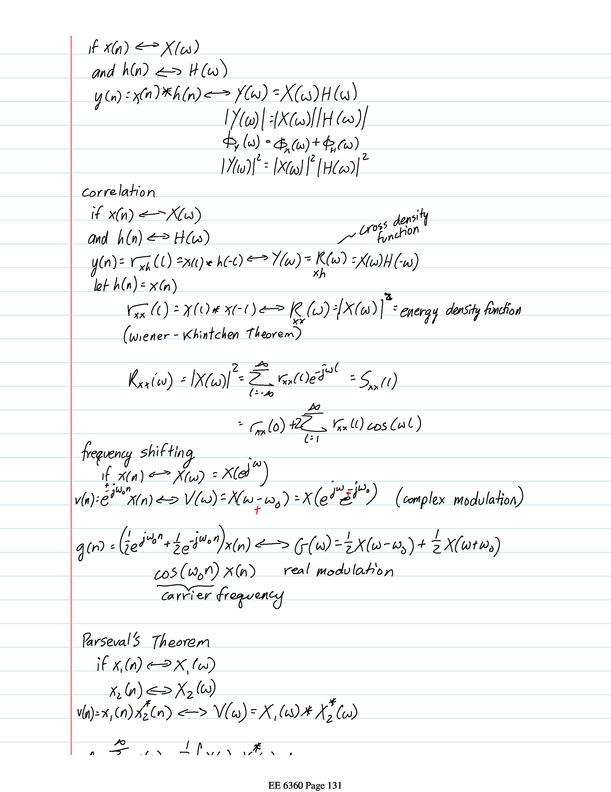 if x(n) ↔ X(ω)
and h(n) ↔ H(ω)
y(n) = x(n) * h(n) ↔ Y(ω) = X(ω)H(ω)
|Y(ω)| = |X(ω)||H(ω)|
ϕ_Y(ω) = ϕ_X(ω) + ϕ_H(ω)
|Y(ω)|² = |X(ω)|²|H(ω)|²
correlation
if x(n) ↔ X(ω)
cross density function
and h(n) ↔ H(ω)
y(n) = r_xh(l) = x(l) * h(-l) ↔ Y(ω) = R_xh(ω) = X(ω)H(-ω)
let h(n) = x(n)
r_xx(l) = x(l) * x(-l) ↔ R_xx(ω) = |X(ω)|² = energy density function
(Wiener-Khintchen Theorem)
R_xx(ω) = |X(ω)|² = ∑_{l=-∞}^{∞} r_xx(l)e^{-jωl} = S_xx(l)
= r_xx(0) + 2∑_{l=1}^{∞} r_xx(l) cos(ωl)
frequency shifting
if x(n) ↔ X(ω) = X(e^{jω})
v(n) = e^{±jω₀n} x(n) ↔ V(ω) = X(ω ∓ ω₀) = X(e^{jω} e^{∓jω₀}) (complex modulation)
g(n) = (½e^{jω₀n} + ½e^{-jω₀n})x(n) ↔ G(ω) = ½X(ω-ω₀) + ½X(ω+ω₀)
cos(ω₀n) x(n) real modulation
carrier frequency
Parseval's Theorem
if x₁(n) ↔ X₁(ω)
x₂(n) ↔ X₂(ω)
v(n) = x₁(n) x₂*(n) ↔ V(ω) = X₁(ω) * X₂*(ω)
EE 6360 Page 131